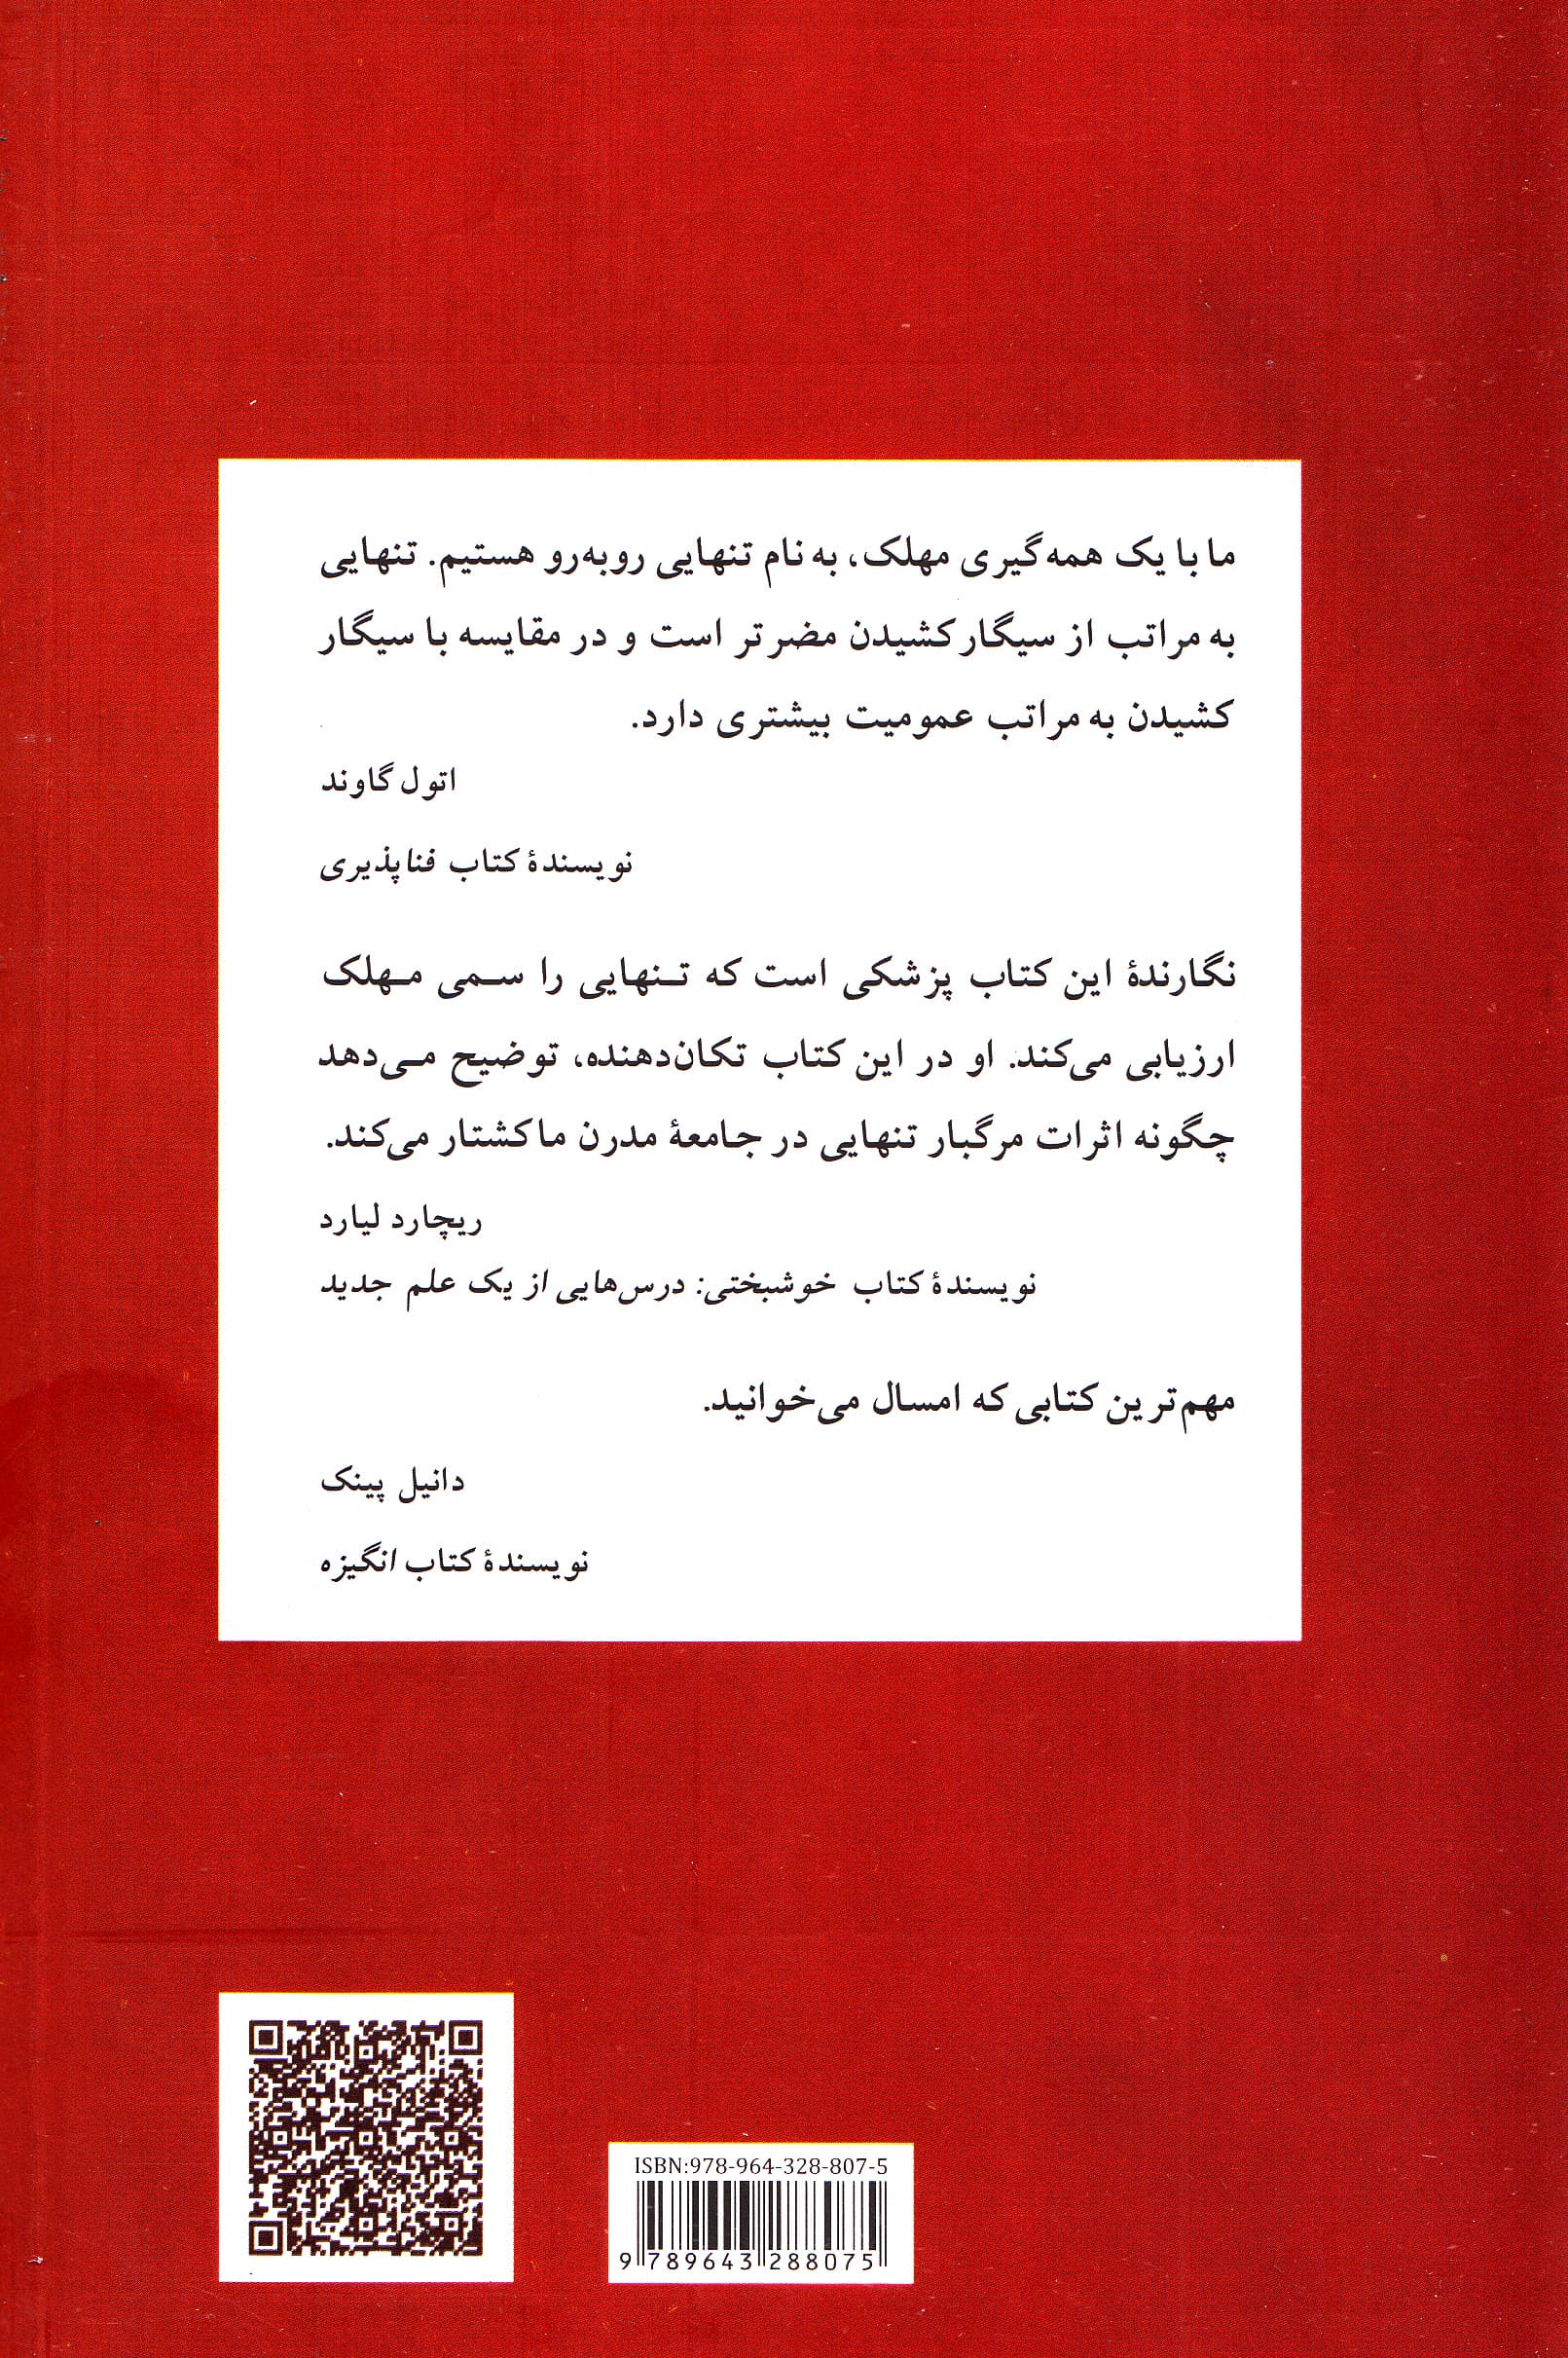 ما با یک همه‌گیری مهلک، به نام تنهایی روبه‌رو هستیم. تنهایی
به مراتب از سیگار کشیدن مضرتر است و در مقایسه با سیگار
کشیدن به مراتب عمومیت بیشتری دارد.
اتول گاوند
نویسندهٔ کتاب فناپذیری
نگارندهٔ این کتاب پزشکی است که تنهایی را سمی مهلک
ارزیابی می‌کند. او در این کتاب تکان‌دهنده، توضیح می‌دهد
چگونه اثرات مرگبار تنهایی در جامعهٔ مدرن ما کشتار می‌کند.
ریچارد لیارد
نویسندهٔ کتاب خوشبختی: درس‌هایی از یک علم جدید
مهم‌ترین کتابی که امسال می‌خوانید.
دانیل پینک
نویسندهٔ کتاب انگیزه
ISBN:978-964-328-807-5
9 789643 288075